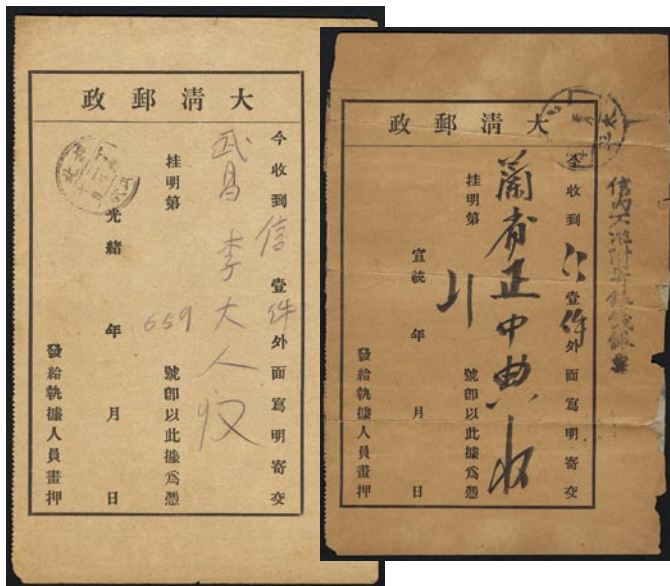 大清郵政
今收到信壹件外面寫明寄交
武昌李大人收
挂明第659號卽以此據爲憑
光緒年月日
發給執據人員畫押
大清郵政
今收到壹件外面寫明寄交
正中典收
挂明第號卽以此據爲憑
宣統年月日
發給執據人員畫押